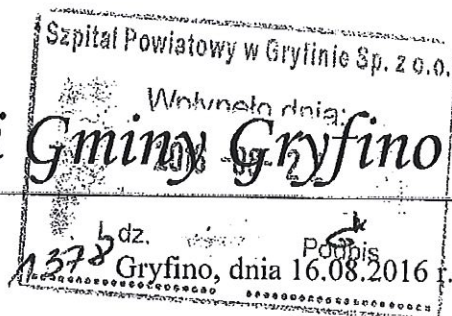 Szpital Powiatowy w Gryfinie Sp. z o.o.
Wpłynęło dnia:
i Gminy Gryfino
L.dz.
Podpis
1378 Gryfino, dnia 16.08.2016 r.